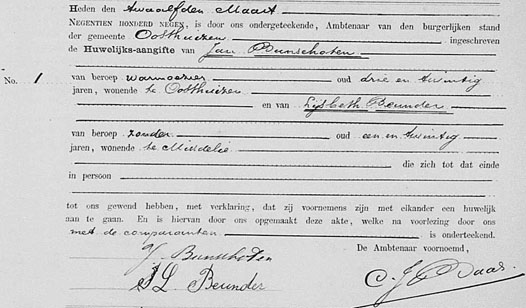 Heden den twaalfden Maart
NEGENTIEN HONDERD NEGEN, is door ons ondergeteekende, Ambtenaar van den burgerlijken stand
der gemeente Oosthuizen ingeschreven
de Huwelijks-aangifte van Jan Bunschoten
No. 1
van beroep warmoezier oud drie en twintig
jaren, wonende te Oosthuizen
en van Lijsbeth Beunder
van beroep zonder oud een en twintig
jaren, wonende te Middelie
die zich tot dat einde
in persoon
tot ons gewend hebben, met verklaring, dat zij voornemens zijn met elkander een huwelijk
aan te gaan. En is hiervan door ons opgemaakt deze akte, welke na voorlezing door ons
met de comparanten is onderteekend.
De Ambtenaar voornoemd,
J Bunschoten
L Beunder